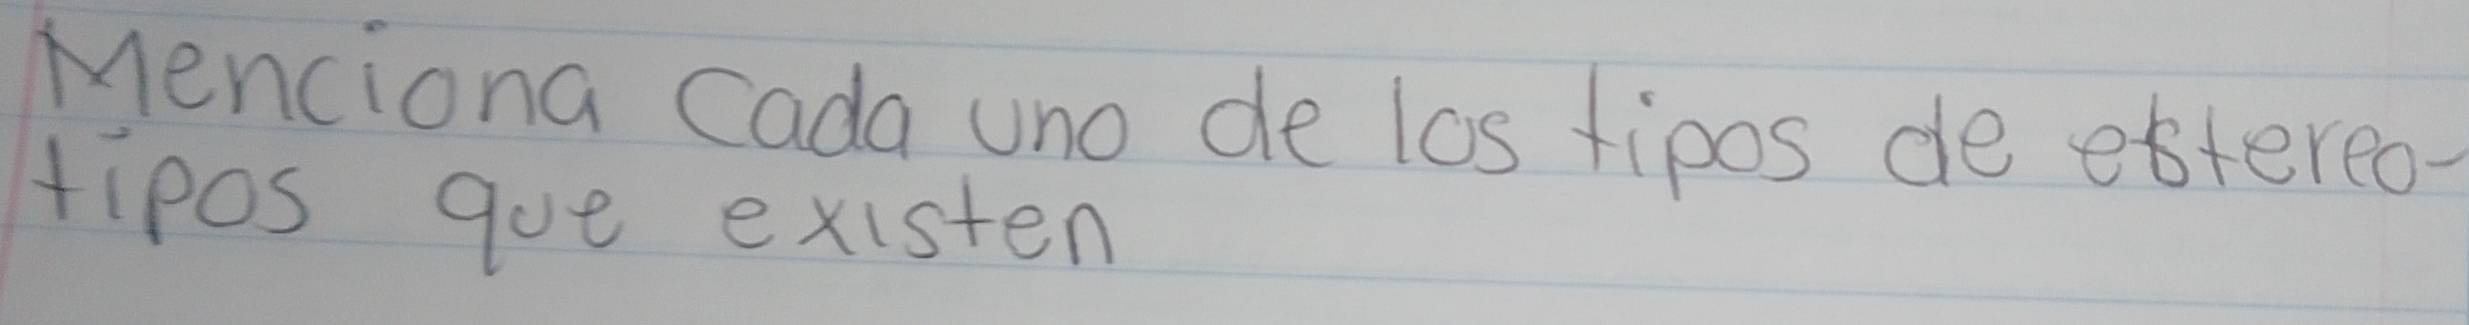 Menciona cada uno de los tipos de estereo-
tipos que existen